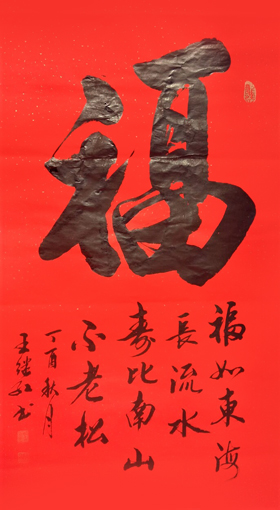 福
福如東海
長流水
壽比南山
不老松
丁酉秋月
王继红书